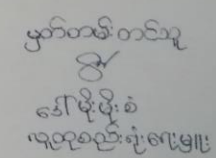 မှတ်တမ်းတင်သူ
ဒေါ်မိုးမိုးစံ
လူထုစည်းရုံးရေးမှူး